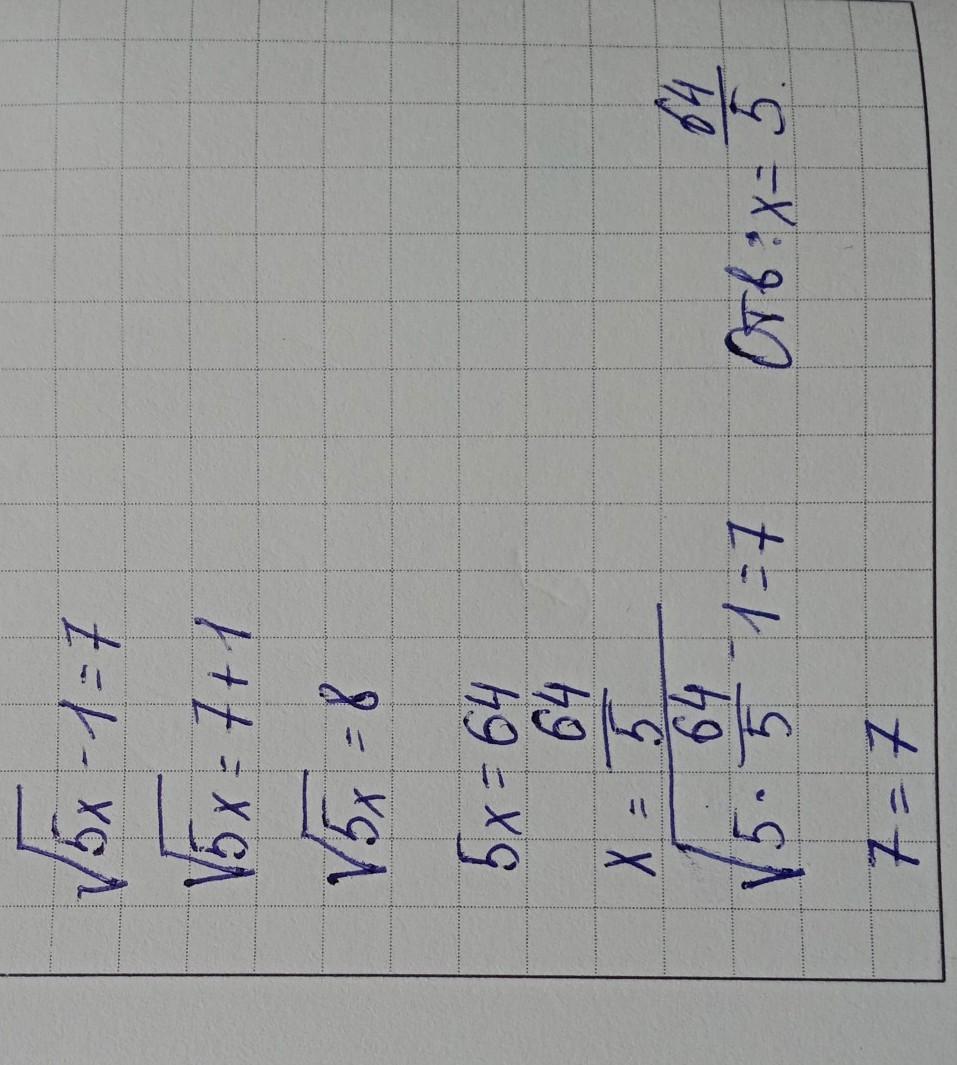 √5x - 1 = 7
√5x = 7 + 1
√5x = 8
5x = 64
x = 64/5
√5 · 64/5 - 1 = 7 Отв: x = 64/5.
7 = 7